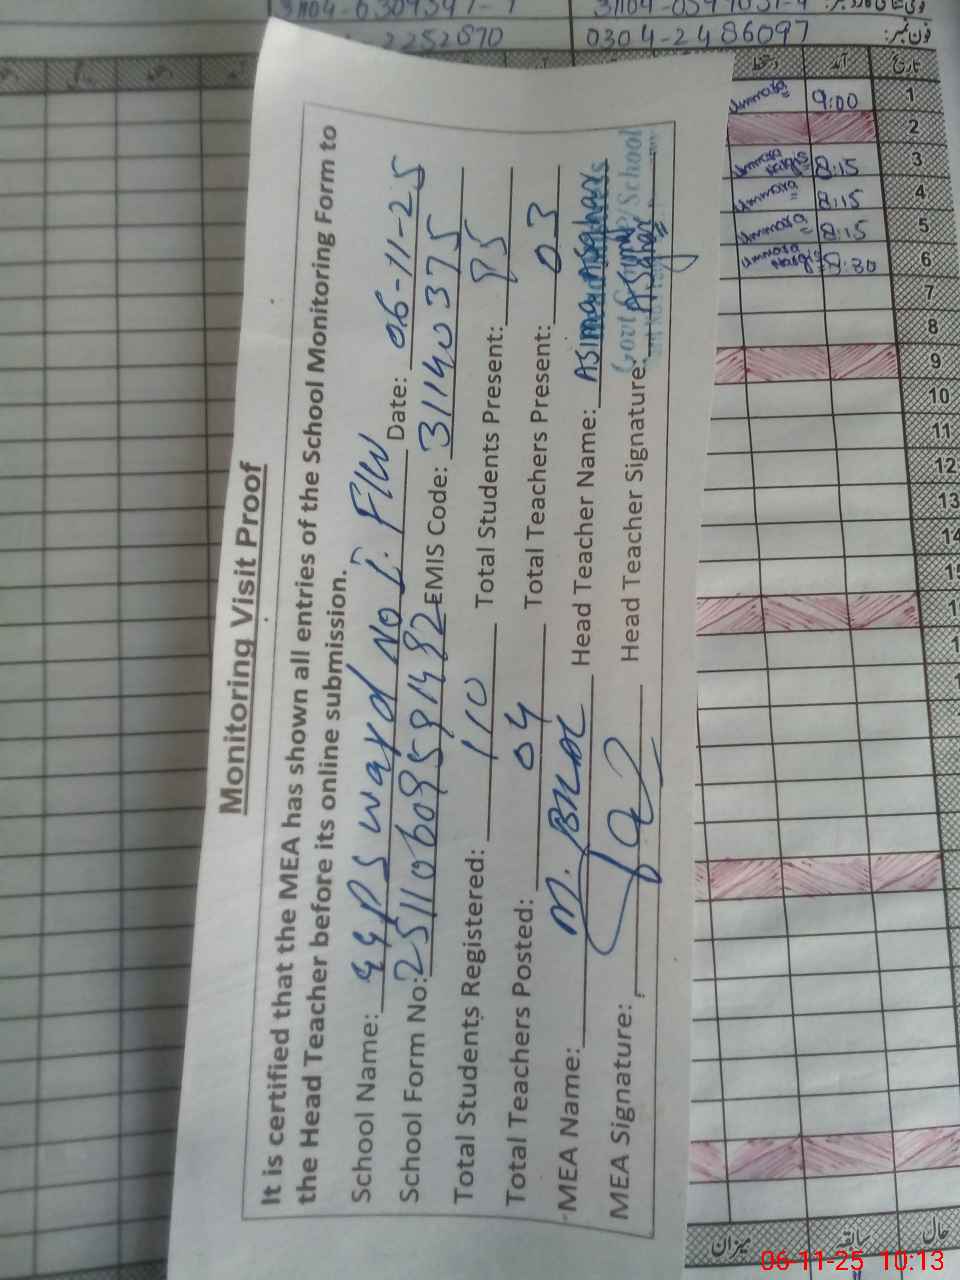 Monitoring Visit Proof
It is certified that the MEA has shown all entries of the School Monitoring Form to
the Head Teacher before its online submission.
School Name: GGPS ward No I. F/W Date: 06-11-25
School Form No: EMIS Code: 31140375
Total Students Registered: 110 Total Students Present: 85
Total Teachers Posted: 04 Total Teachers Present: 03
MEA Name: M. Head Teacher Name: Asima Asghar
MEA Signature: Head Teacher Signature:
Govt School
فون نمبر: 0304-2486097 2252870
تاریخ آمد دستخط
1 9:00
2
3 8:15
4 8:15
5 8:15
6 8:30
7
8
9
10
11
12
13
14
میزان سابقہ حال
06-11-25 10:13